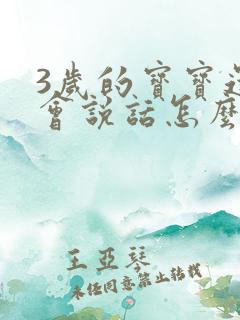 3岁的宝宝还
会说话怎么
王亚琴
未经同意禁止转载